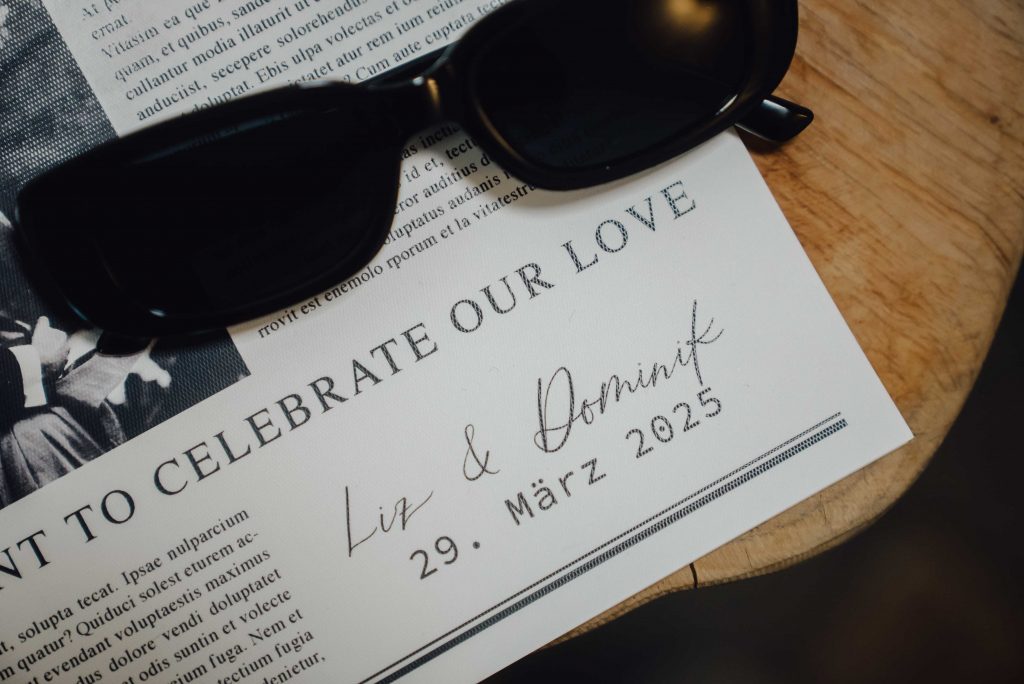 ernat.
Vitasim ea que
quam, et quibus, sandae
cullantur modia illaturit ut
anduciist, secepere solorehendus
doluptat. Ebis ulpa volectas et
tatet atur rem ium reium
Cum aute cuptata
id et,
eror auditius
oluptatus audanis
rporum et la vitatestru
rrovit est enemolo
NT TO CELEBRATE OUR LOVE
Liz & Dominik
29. März 2025
solupta tecat. Ipsae nulparcium
quatur? Quiduci solest eturem ac-
evendant voluptaestis maximus
dolore vendi doluptatet
odis suntin et volecte
fuga. Nem et
tectium fugia
denietur,